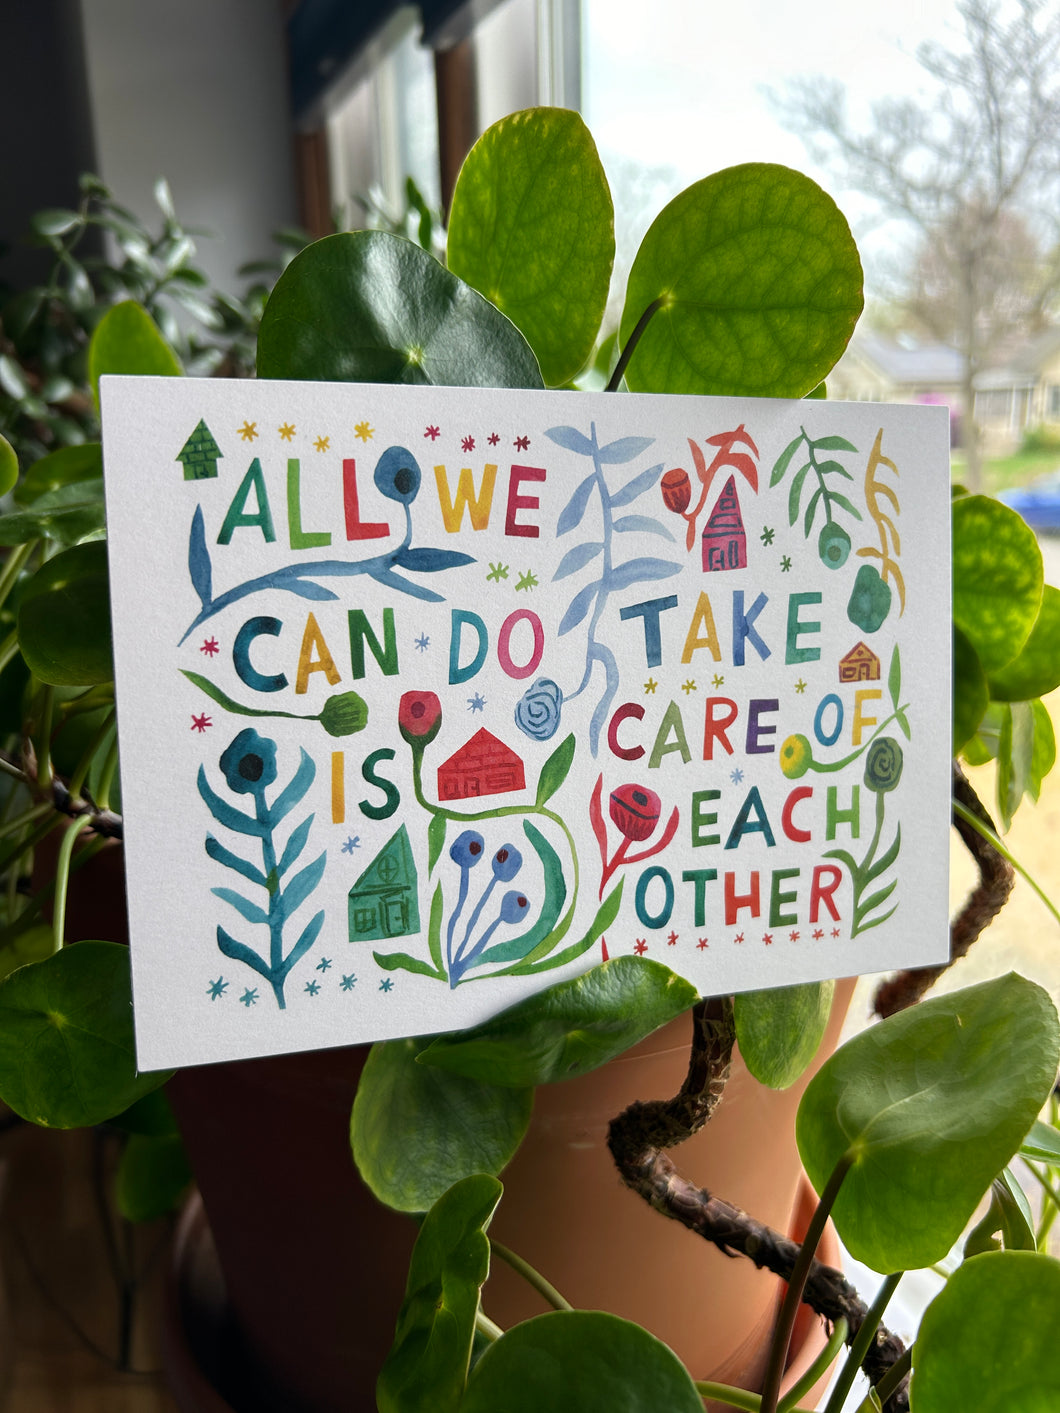 ALL WE
CAN DO
IS
TAKE
CARE OF
EACH
OTHER